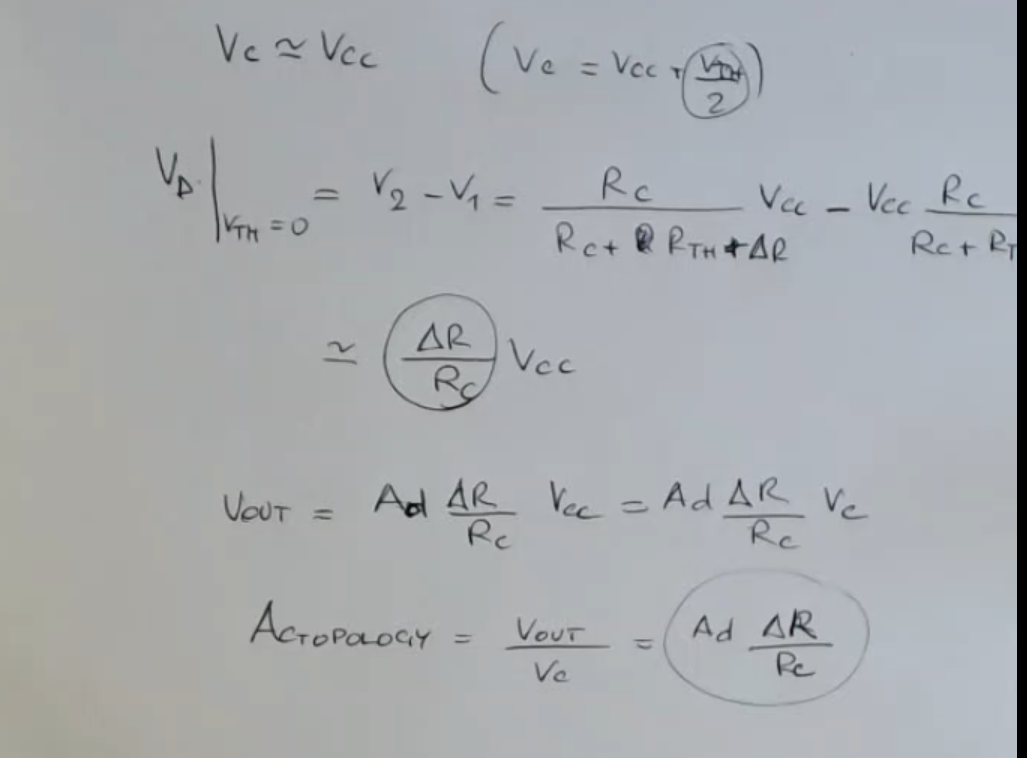 Vc ≃ Vcc (Vc = Vcc + VTH/2)
VD|VTH=0 = V2 - V1 = Rc/(Rc + RTH + ΔR) Vcc - Vcc Rc/(Rc + RT
≃ ΔR/Rc Vcc
VOUT = Ad ΔR/Rc Vcc = Ad ΔR/Rc Vc
ACTOPOLOGY = VOUT/Vc = Ad ΔR/Rc